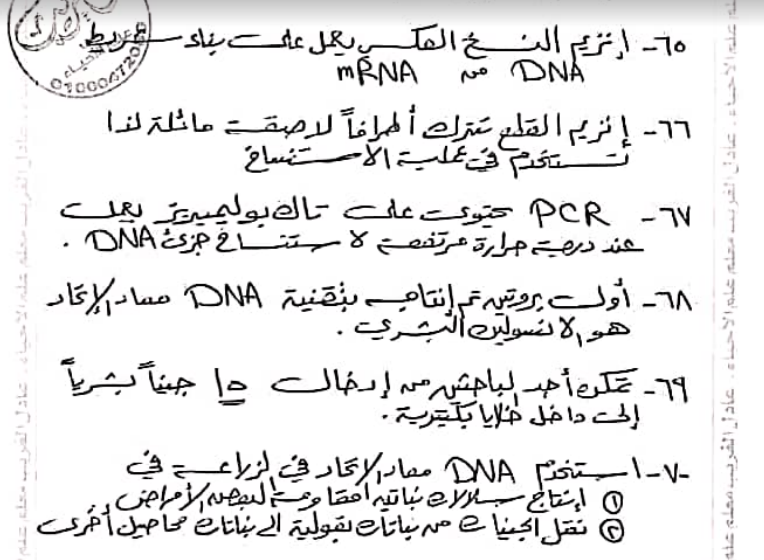 ٦٥- إنزيم النسخ العكسى يعمل على بناء شريط
DNA من mRNA
٦٦- إنزيم القطع تترك أطرافاً لاصقة مائلة لذا
تستخدم في عملية الاستنساخ
٦٧- PCR يحتوى على تاك بوليميريز يعمل
عند درجة حرارة مرتفعة لاستنساخ جزئ DNA .
٦٨- أول بروتين تم إنتاجه بتقنية DNA معاد الإتحاد
هو الانسولين البشري .
٦٩- تمكن أحد الباحثين من إدخال ١٥ جيناً بشرياً
إلى داخل خلايا بكتيرية .
٧٠- استخدم DNA معاد الاتحاد في الزراعة في
① إنتاج سلالات نباتية مقاومة لبعض الأمراض
② نقل الجينات من نباتات بقولية الى نباتات محاصيل أخرى
عادل الغريب معلم علم الاحياء